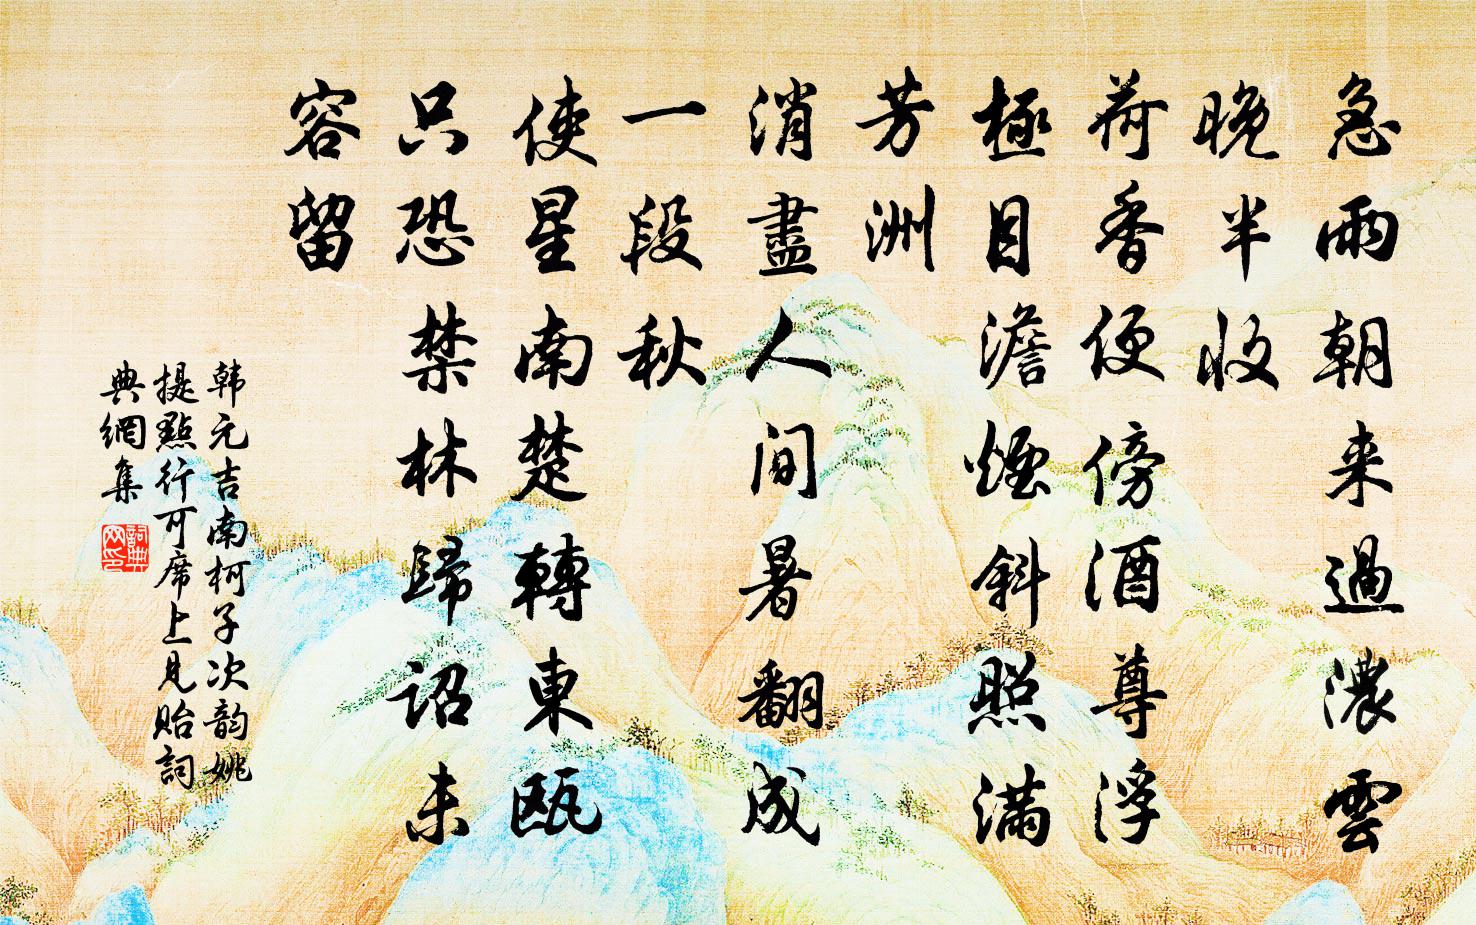 急雨朝来過濃雲
晚半收
荷香便傍酒尊浮
極目澹煙斜照滿
芳洲
消盡人间暑翻成
一段秋
使星南楚轉東甌
只恐禁林歸诏未
容留
韩元吉南柯子次韵姚
提點行可席上見贻詞
典網集
詞典网印